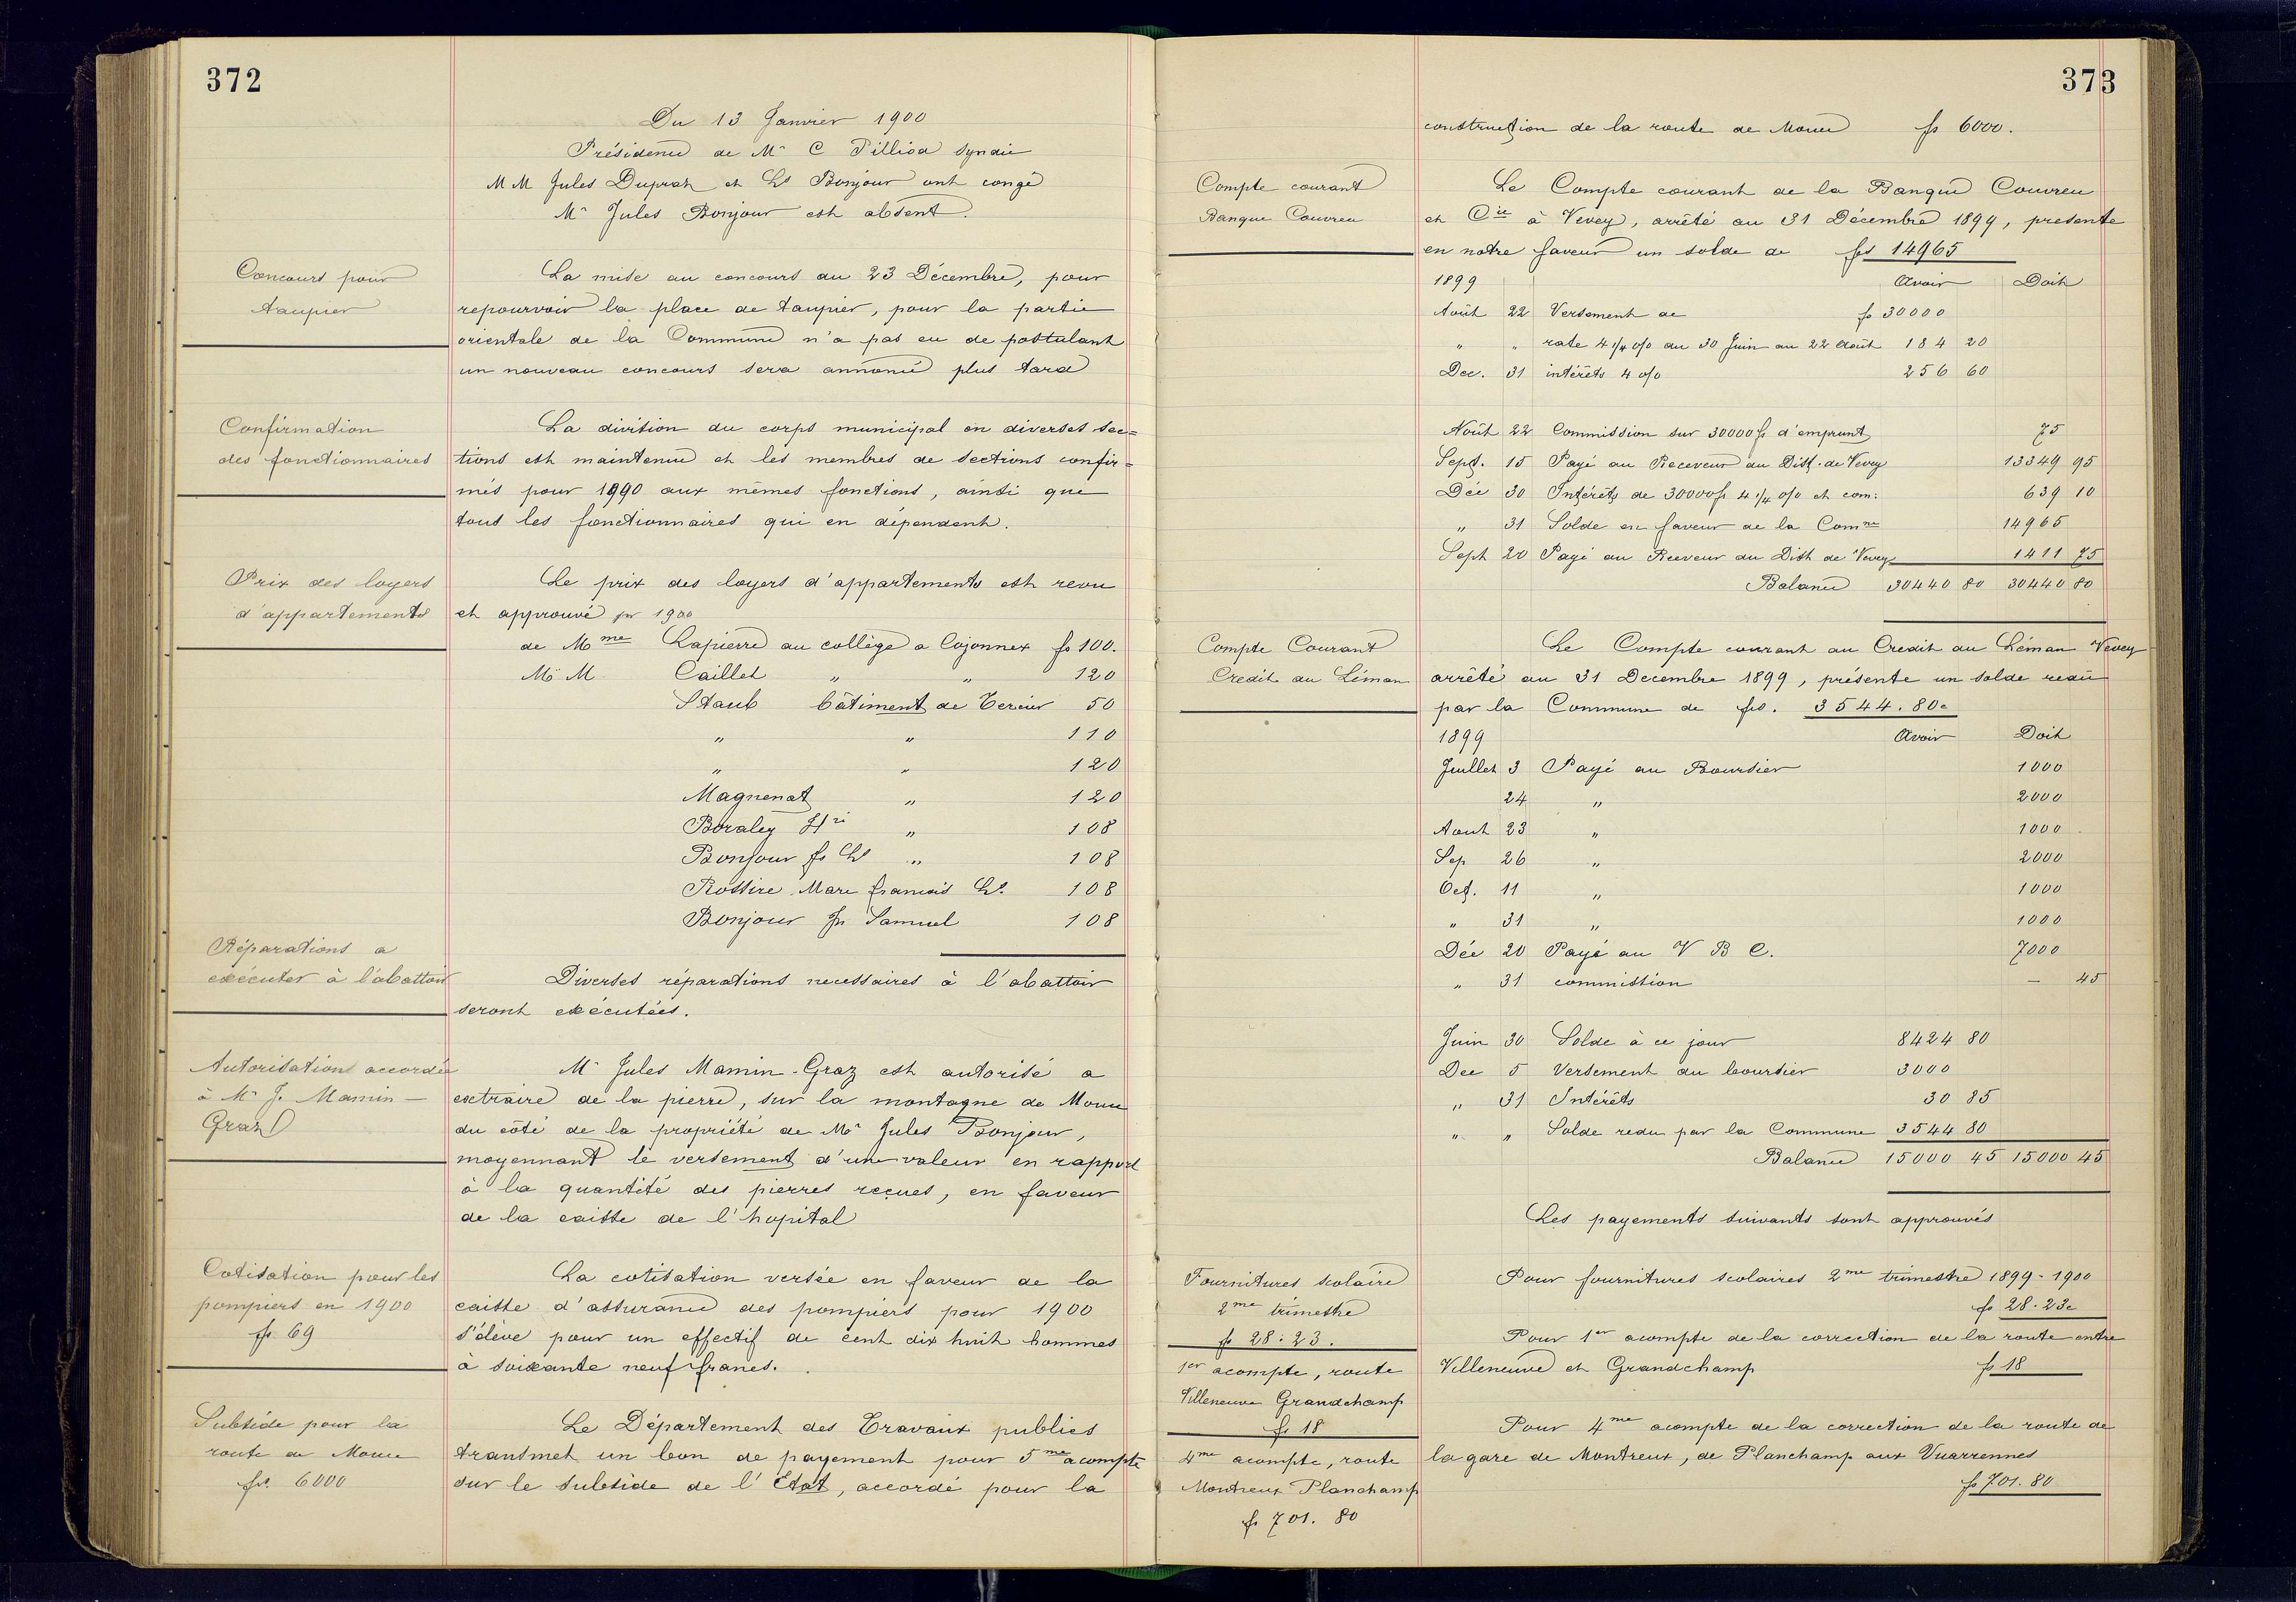 372
Du 13 Janvier 1900
Présidence de Mr C Pilliod syndic
MM Jules Dupraz et Ls Bonjour ont congé
Mr Jules Bonjour est absent.
Concours pour
taupier
La mise au concours du 23 Décembre, pour
repourvoir la place de taupier, pour la partie
orientale de la Commune n'a pas eu de postulant
un nouveau concours sera annoncé plus tard
Confirmation
des fonctionnaires
La division du corps municipal en diverses sec=
tions est maintenue et les membres de sections confir=
més pour 1990 aux mêmes fonctions, ainsi que
tous les fonctionnaires qui en dépendent.
Prix des loyers
d'appartements
Le prix des loyers d'appartements est revu
et approuvé pr 1900
de Mme Lapierre au collège a Cojonnex fs 100.
Mr M Caillet " " 120
Staub bâtiment de Tercier 50
" " 110
" " 120
Magnenat " 120
Boraley Hri " 108
Bonjour fs Ls " 108
Rossire Marc francois Ls. 108
Bonjour fs Samuel 108
Réparations a
exécuter à l'abattoir
Diverses réparations necessaires à l'abattoir
seront exécutées.
Autorisations accordée
à Mr J. Mamin –
Graz
Mr Jules Mamin-Graz est autorisé a
extraire de la pierre, sur la montagne de Mouu
du côté de la propriété de Mr Jules Bonjour,
moyennant le versement d'une valeur en rapport
à la quantité des pierres reçues, en faveur
de la caisse de l'hopital
Cotisation pour les
pompiers en 1900
fs 69
La cotisation versée en faveur de la
caisse d'assurance des pompiers pour 1900
s'élève pour un effectif de cent dix huit hommes
à soixante neuf francs.
Subside pour la
route de Mouu
fs. 6000
Le Département des Travaux publics
transmet un bon de payement pour 5me acompte
sur le subside de l'Etat, accordé pour la
373
construction de la route de Mouu fs 6000.
Compte courant
Banque Couvreu
Le Compte courant de la Banque Couvreu
et Cie à Vevey, arrêté au 31 Décembre 1899, presente
en notre faveur un solde de fs 14965
1899 Avoir Doit
Août 22 Versement de fs 30000
" " rate 4 1/4 o/o du 30 Juin au 22 Août 184 20
Dec. 31 intérêts 4 o/o 256 60
Août 22 Commission sur 30000 fs d'emprunt 75
Sept. 15 Payé au Receveur du Dist. de Vevey 13349 95
Déc 30 Intérêts de 30000 fs 4 1/4 o/o et com: 639 10
" 31 Solde en faveur de la Comne 14965
Sept 20 Payé au Receveur du Dist de Vevey 1411 75
Balance 30440 80 30440 80
Compte Courant
Credit du Léman
Le Compte courant au Credit du Léman Vevey
arrêté au 31 Decembre 1899, présente un solde redû
par la Commune de fs. 3544.80c
1899 Avoir Doit
Juillet 3 Payé au Boursier 1000
24 " 2000
Aout 23 " 1000
Sep 26 " 2000
Oct. 11 " 1000
" 31 " 1000
Déc 20 Payé au V B C. 7000
" 31 commission — 45
Juin 30 Solde à ce jour 8424 80
Dec 5 Versement du boursier 3000
" 31 Intérêts 30 85
" " Solde redu par la Commune 3544 80
Balance 15000 45 15000 45
Les payements suivants sont approuvés
Fournitures scolaire
2me trimestre
fs 28:23.
Pour fournitures scolaires 2me trimestre 1899-1900
fs 28.23c
1er acompte, route
Villeneuve Grandchamp
fs 18
Pour 1er acompte de la correction de la route entre
Villeneuve et Grandchamp fs 18
4me acompte, route
Montreux Planchamp
fs 701. 80
Pour 4me acompte de la correction de la route de
la gare de Montreux, de Planchamp aux Vuarrennes
fs 701.80